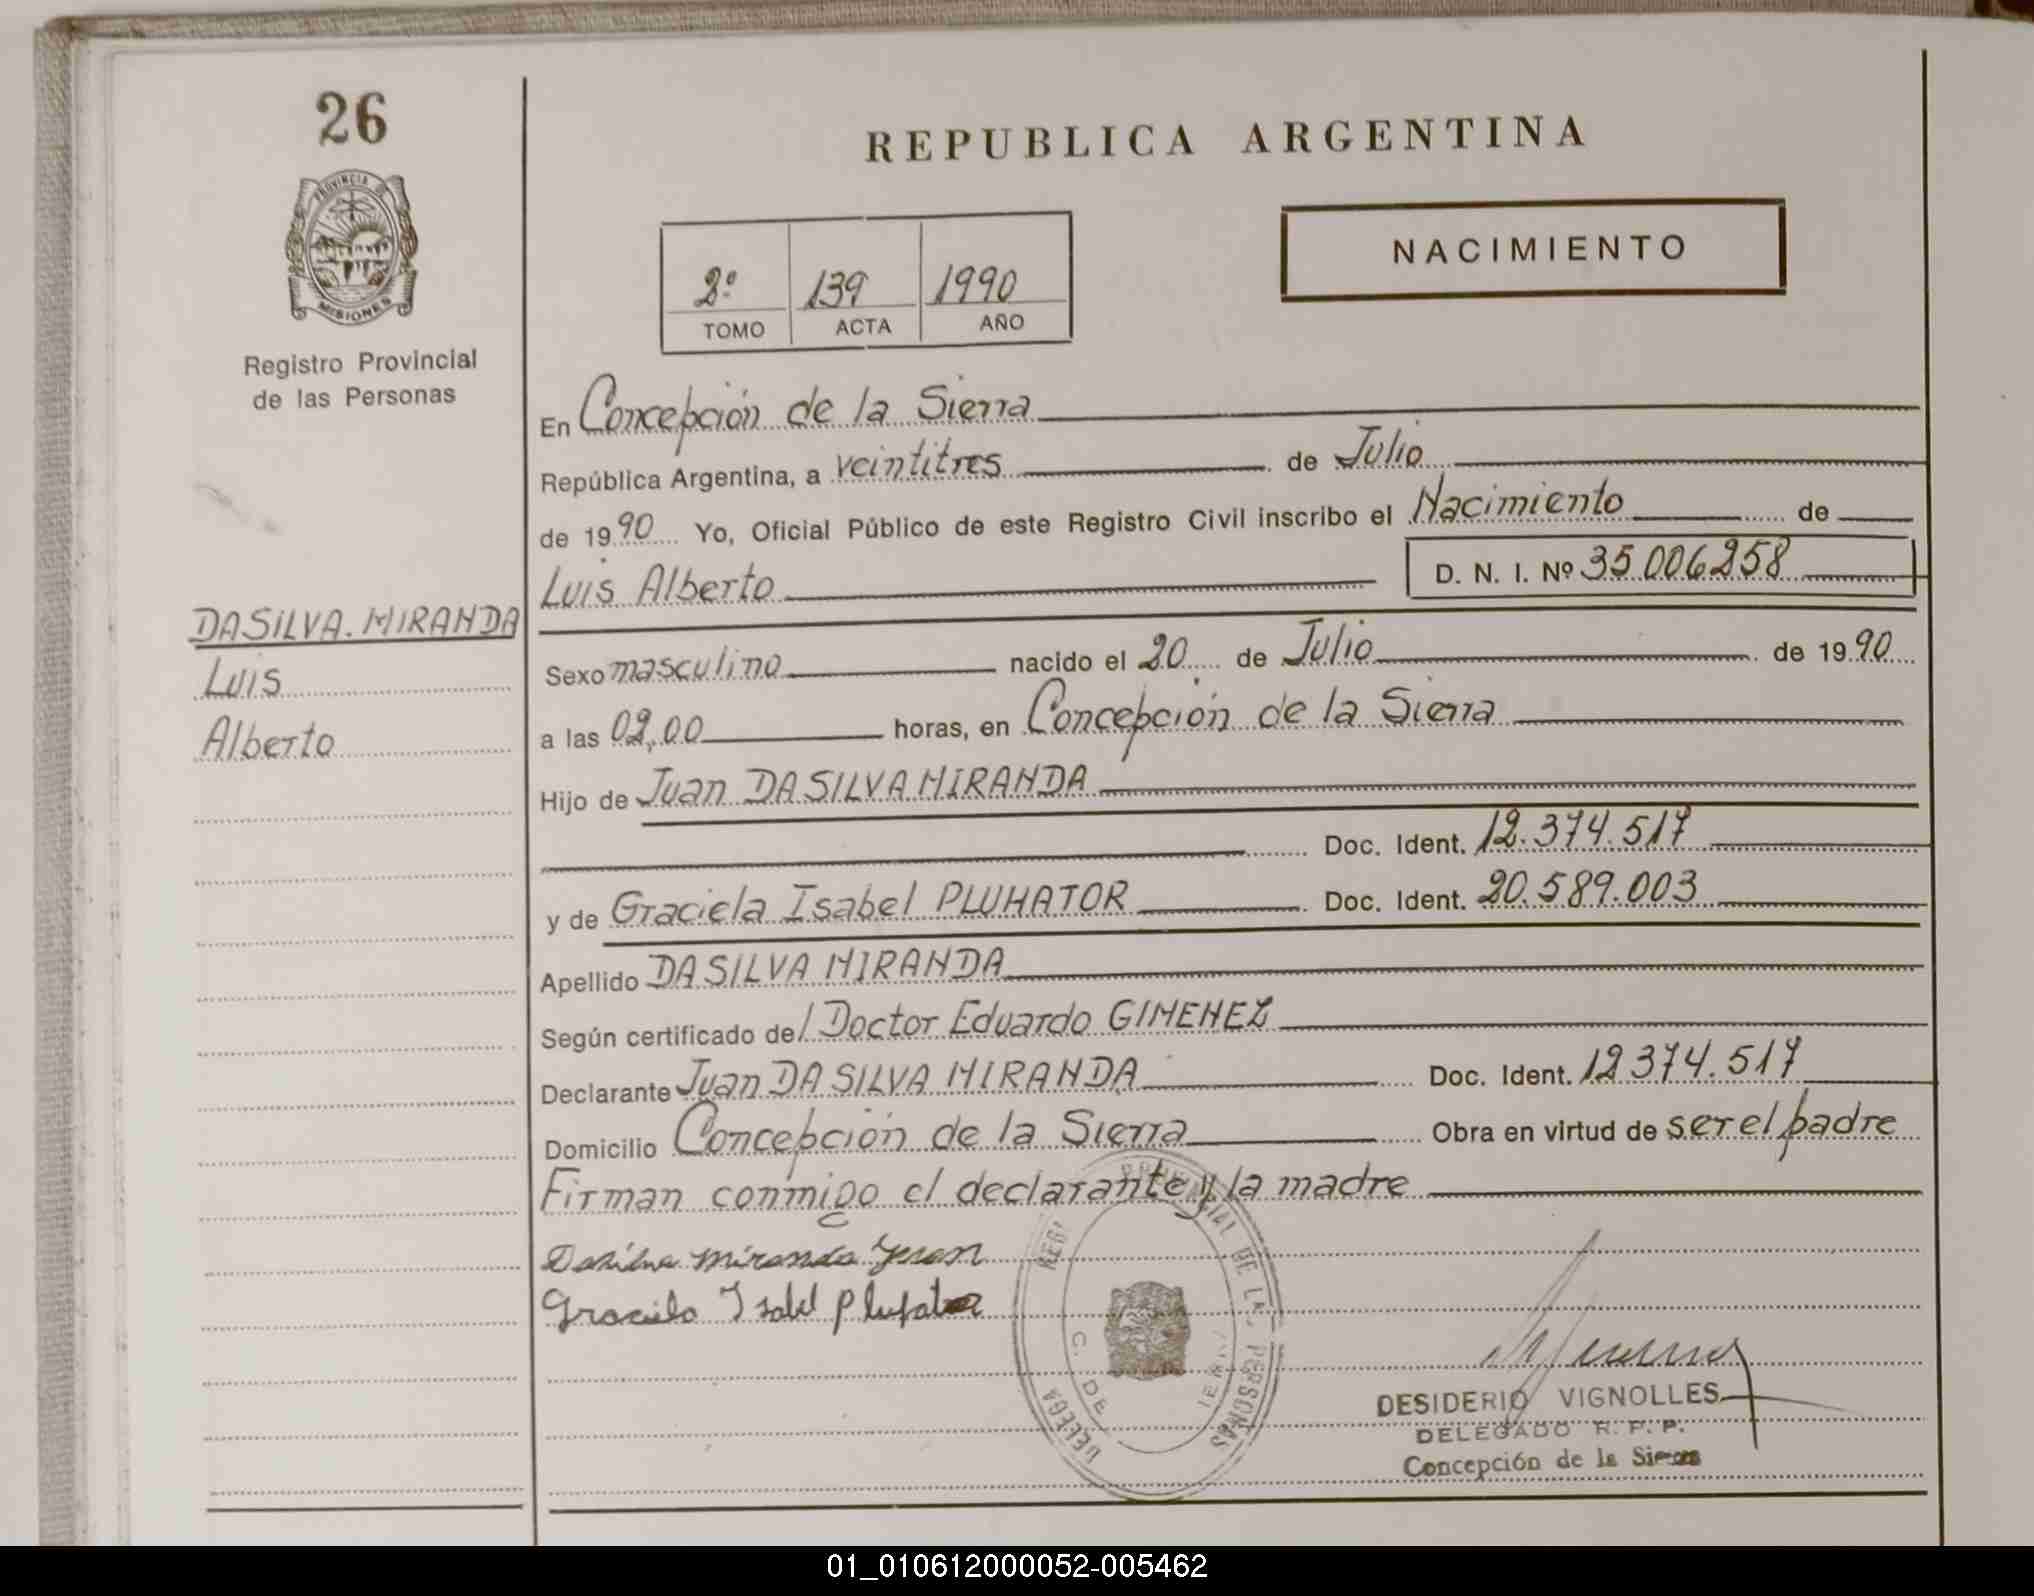 26
PROVINCIA DE
MISIONES
Registro Provincial
de las Personas
DA SILVA. MIRANDA
Luis
Alberto
REPUBLICA ARGENTINA
NACIMIENTO
2º 139 1990
TOMO ACTA AÑO
En Concepción de la Sierra
República Argentina, a veintitres de Julio
de 1990 Yo, Oficial Público de este Registro Civil inscribo el Nacimiento de
Luis Alberto D. N. I. Nº 35.006258
Sexo masculino nacido el 20 de Julio de 1990
a las 02,00 horas, en Concepción de la Sierra
Hijo de Juan DA SILVA MIRANDA
Doc. Ident. 12.374.517
y de Graciela Isabel PLUHATOR Doc. Ident. 20.589.003
Apellido DA SILVA MIRANDA
Según certificado del Doctor Eduardo GIMENEZ
Declarante Juan DA SILVA MIRANDA Doc. Ident. 12374.517
Domicilio Concepción de la Sierra Obra en virtud de ser el padre
Firman conmigo el declarante y la madre
Dasilva Miranda Juan
Graciela Isabel Plufator
DESIDERIO VIGNOLLES
DELEGADO R. P. P.
Concepción de la Sierra
01_010612000052-005462